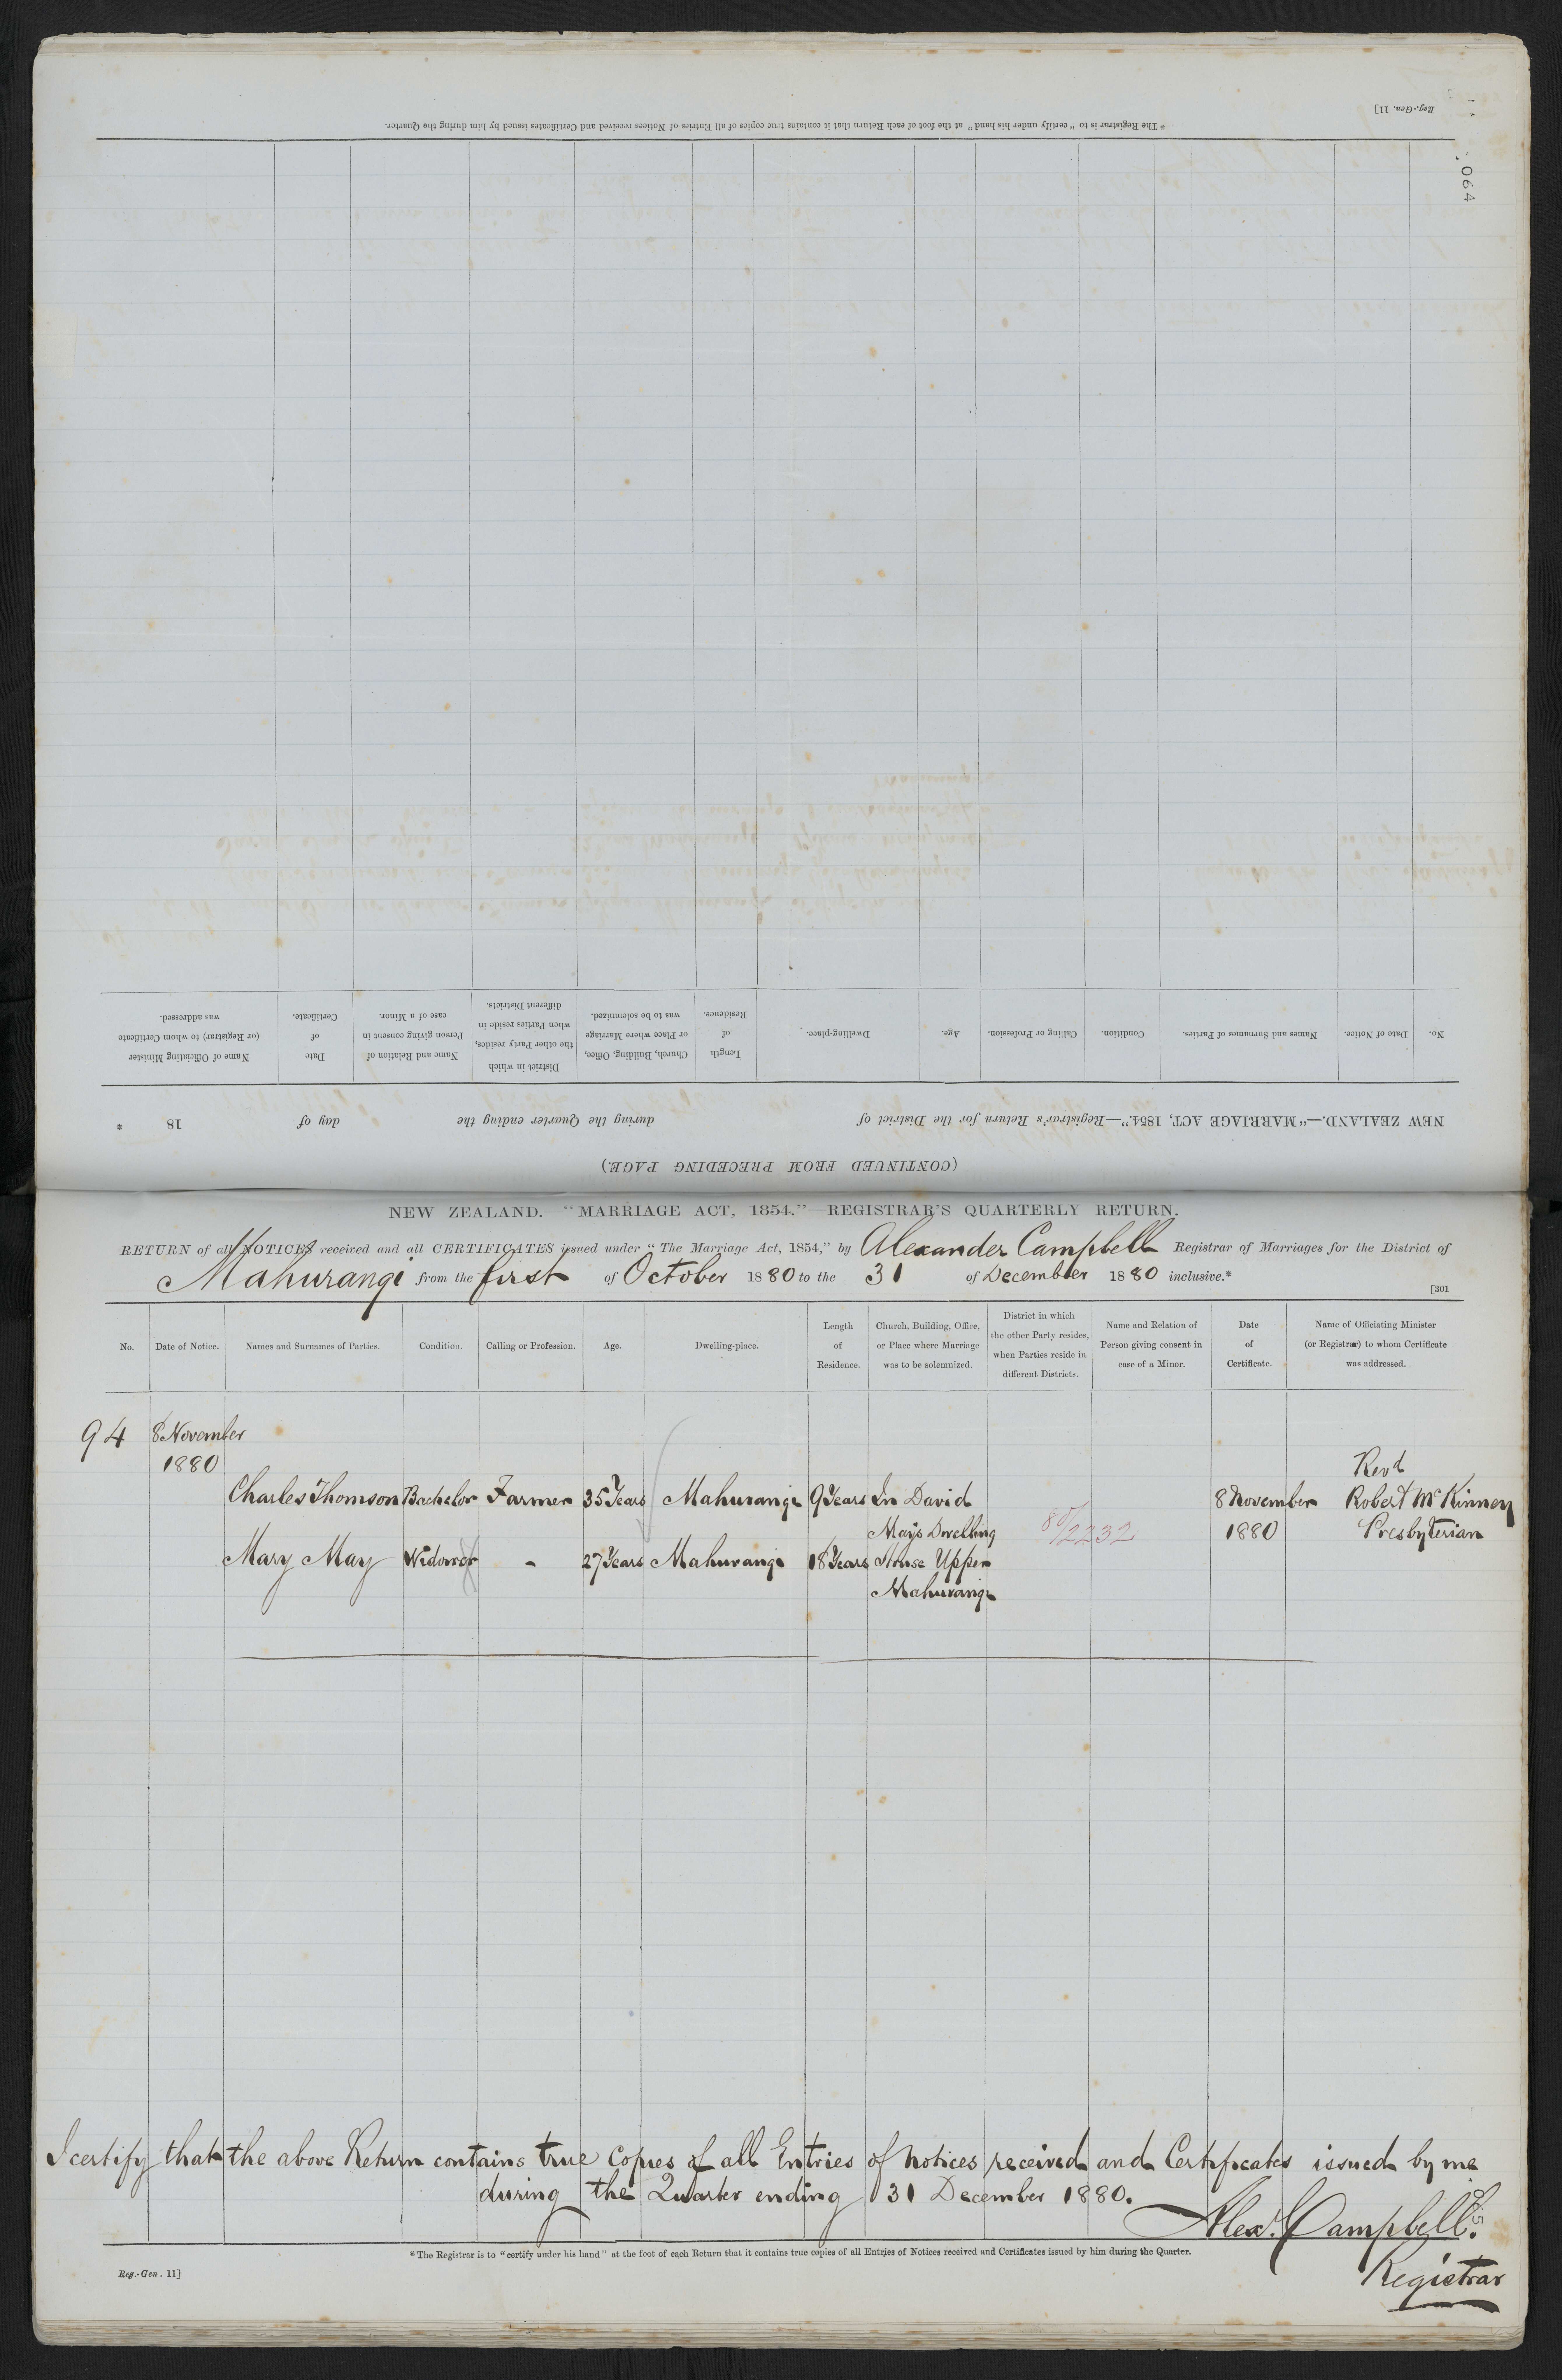 Reg.-Gen. 11]
* The Registrar is to "certify under his hand" at the foot of each Return that it contains true copies of all Entries of Notices received and Certificates issued by him during the Quarter.
064
No. Date of Notice. Names and Surnames of Parties. Condition. Calling or Profession. Age. Dwelling-place. Length of Residence. Church, Building, Office, or Place where Marriage was to be solemnized. District in which the other Party resides, when Parties reside in different Districts. Name and Relation of Person giving consent in case of a Minor. Date of Certificate. Name of Officiating Minister (or Registrar) to whom Certificate was addressed.
NEW ZEALAND.—"MARRIAGE ACT, 1854."—Registrar's Return for the District of during the Quarter ending the day of 18 *
(CONTINUED FROM PRECEDING PAGE.)
NEW ZEALAND.—"MARRIAGE ACT, 1854."—REGISTRAR'S QUARTERLY RETURN.
RETURN of all NOTICES received and all CERTIFICATES issued under "The Marriage Act, 1854," by Alexander Campbell Registrar of Marriages for the District of
Mahurangi from the first of October 1880 to the 31 of December 1880 inclusive.*
[301
No. Date of Notice. Names and Surnames of Parties. Condition. Calling or Profession. Age. Dwelling-place. Length of Residence. Church, Building, Office, or Place where Marriage was to be solemnized. District in which the other Party resides, when Parties reside in different Districts. Name and Relation of Person giving consent in case of a Minor. Date of Certificate. Name of Officiating Minister (or Registrar) to whom Certificate was addressed.
94 8 November
1880 Revd
Charles Thomson Bachelor Farmer 35 Years Mahurangi 9 Years In David 8 November Robert McKinney
Mays Dwelling 80/2232 1880 Presbyterian
Mary May Widower - 27 Years Mahurangi 18 Years House Upper
Mahurangi
I certify that the above Return contains true Copies of all Entries of Notices received and Certificates issued by me
during the Quarter ending 31 December 1880.
Alexr. Campbell.
* The Registrar is to "certify under his hand" at the foot of each Return that it contains true copies of all Entries of Notices received and Certificates issued by him during the Quarter.
Reg.-Gen. 11]
Registrar